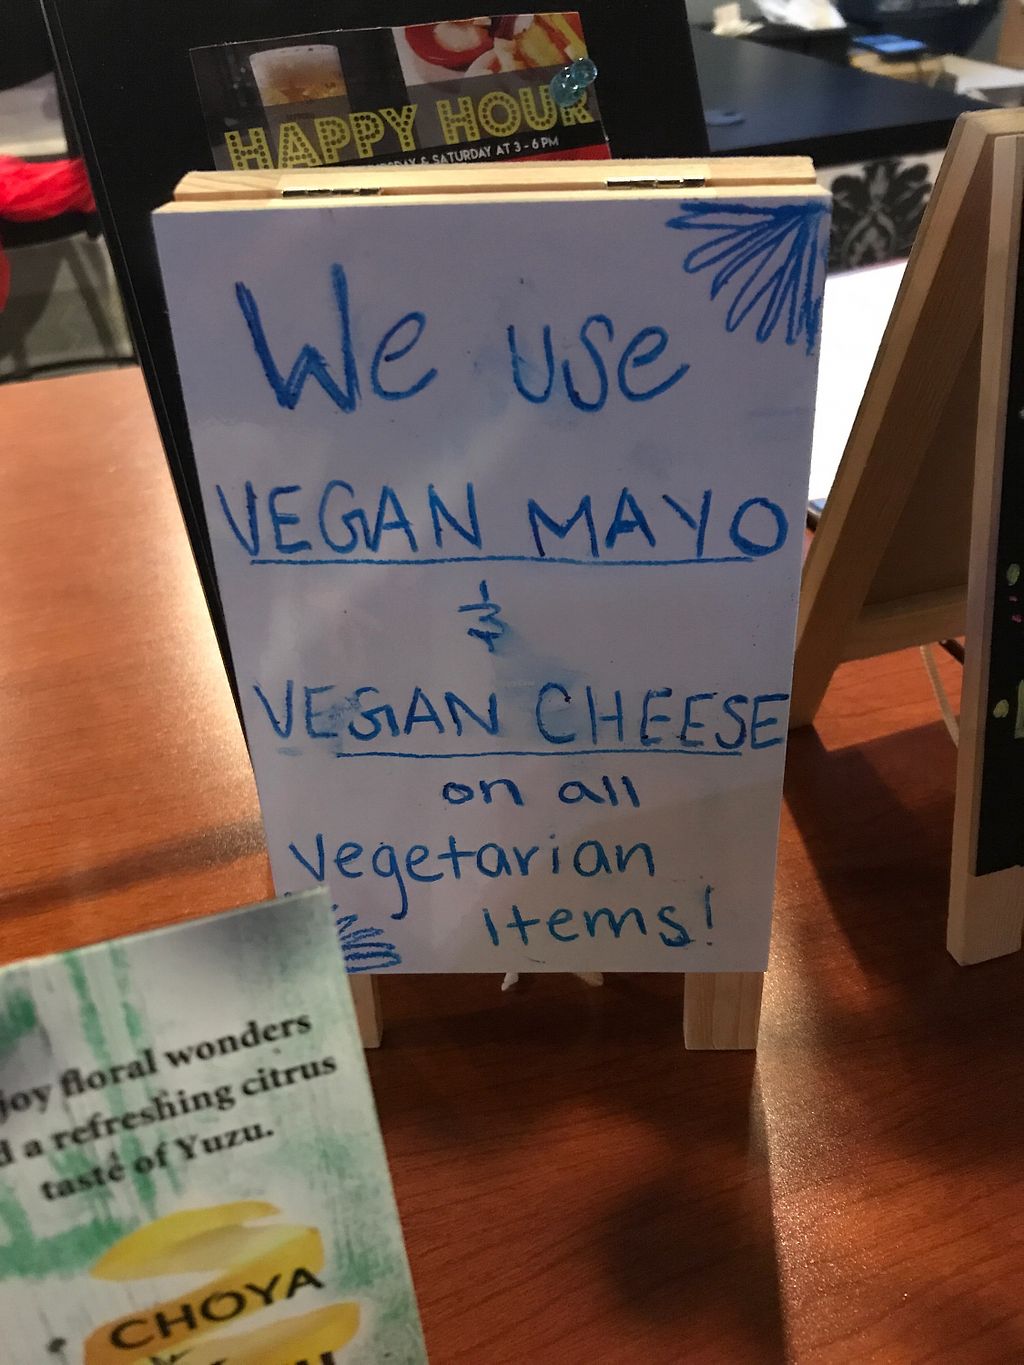 HAPPY HOUR
& SATURDAY AT 3 - 6 PM
We use
VEGAN MAYO
&
VEGAN CHEESE
on all
vegetarian
items!
floral wonders
a refreshing citrus
taste of Yuzu.
CHOYA